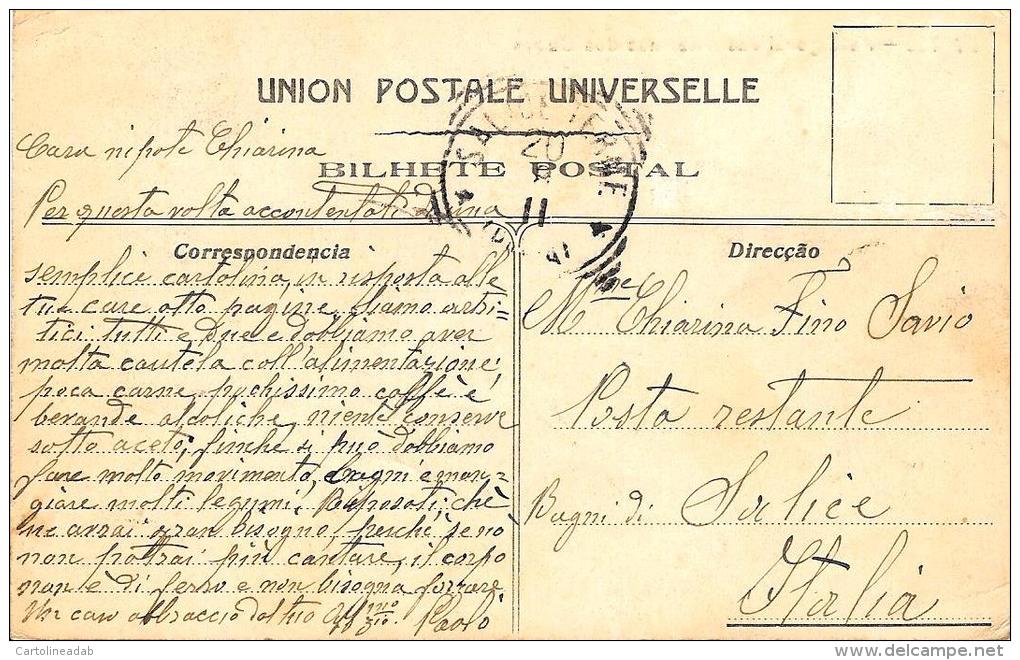 UNION POSTALE UNIVERSELLE
Cara nipote Chiarina
BILHETE POSTAL
SALICE TERME
20
11
Per questa volta accontentati d'una
Correspondencia
semplice cartolina in risposta alle
tue care otto pagine. Siamo artri=
tici tutti e due e dobbiamo aver
molta cautela coll'alimentazione:
poca carne, pochissimo caffè e
bevande alcoliche, niente conserve
sotto aceto, finche si può dobbiamo
fare molto movimento, bagni e man=
giare molti legumi. Riposati, chè
ne avrai gran bisogno, perchè se no
non potrai più cantare, il corpo
non è di ferro e non bisogna forzare
Un caro abbraccio dal tuo Aff.mo zio Paolo
Direcção
Mme Chiarina Fino Savio
Posta restante
Bagni di Salice
Italia
Cartolineadab
www.delcampe.net